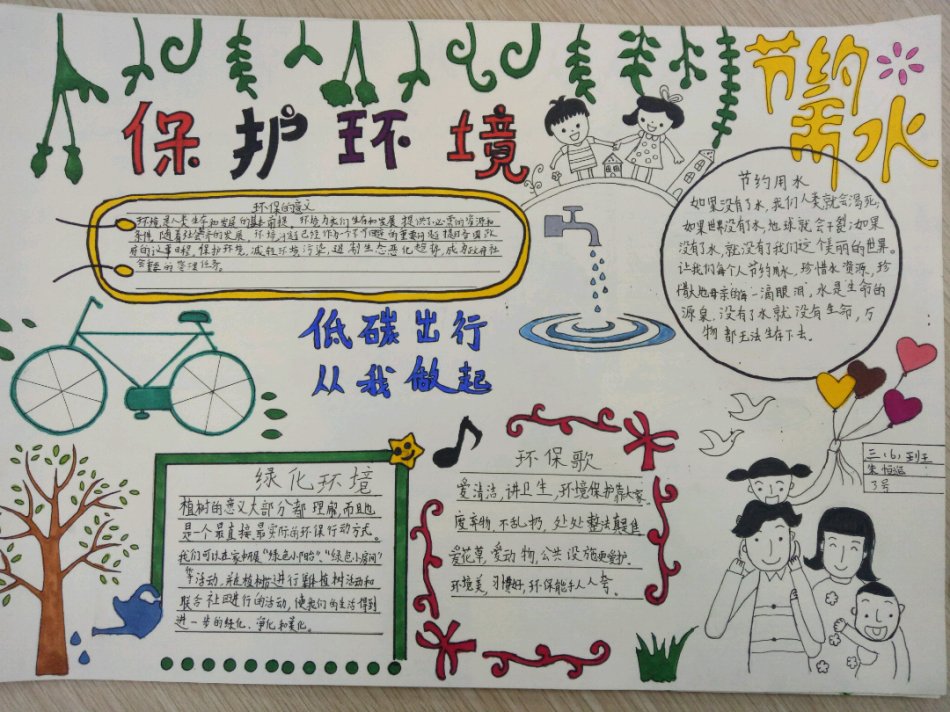 保护环境
节约
用水
环保的意义
环境是人类生存和发展的基本前提。环境为我们生存和发展提供了必需的资源和
条件。随着社会经济的发展，环境问题已经作为一个不可回避的重要问题提上了各国政
府的议事日程。保护环境，减轻环境污染，遏制生态恶化趋势，成为政府社
会管理的重要任务。
节约用水
如果没有了水，我们人类就会渴死；
如果世界没有水，地球就会干裂；如果
没有了水，就没有我们这个美丽的世界。
让我们每个人节约用水，珍惜水资源，珍
惜地母亲的每一滴眼泪，水是生命的
源泉，没有了水就没有生命，万
物都无法生存下去。
低碳出行
从我做起
三（6）班
朱恒
3号
绿化环境
植树的意义大部分都理解，而且他
是一个最直接、最实际的环保行动方式。
我们可以在家中开展“绿色小阳台”、“绿色小房间”
等活动，并在植树节进行集体植树活动和
联合社团进行的活动，使我们的生活得到
进一步的绿化、净化和美化。
环保歌
爱清洁，讲卫生，环境保护靠大家。
废弃物不乱扔，处处整洁真是佳
爱花草，爱动物，公共设施更爱护。
环境美，习惯好，环保能手人人夸。